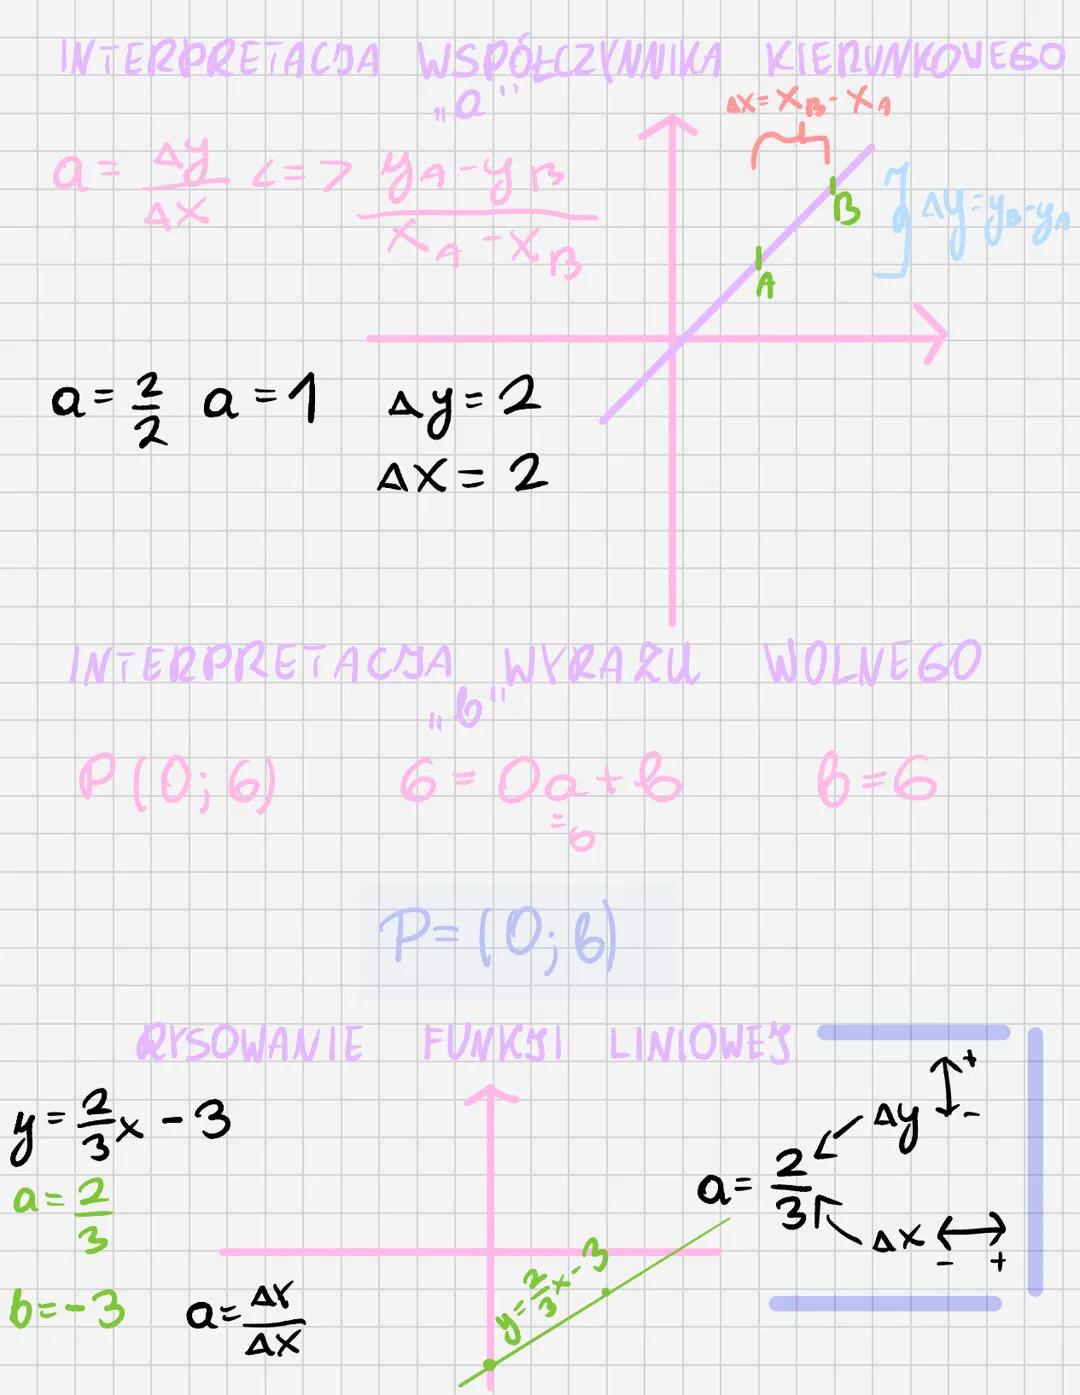 INTERPRETACJA WSPÓŁCZYNNIKA KIERUNKOWEGO
„a"
a = Δy/Δx <=> yA - yB / xA - xB
Δx = xB - xA
Δy = yB - yA
B
A
a = 2/2 a = 1
Δy = 2
Δx = 2
INTERPRETACJA WYRAZU WOLNEGO
„b"
P(0; 6) 6 = 0a + b b = 6
=0
P = (0; b)
RYSOWANIE FUNKJI LINIOWEJ
y = 2/3 x - 3
a = 2/3
b = -3
a = ΔY/ΔX
y = 2/3 x - 3
a = 2/3
Δy + -
Δx - +